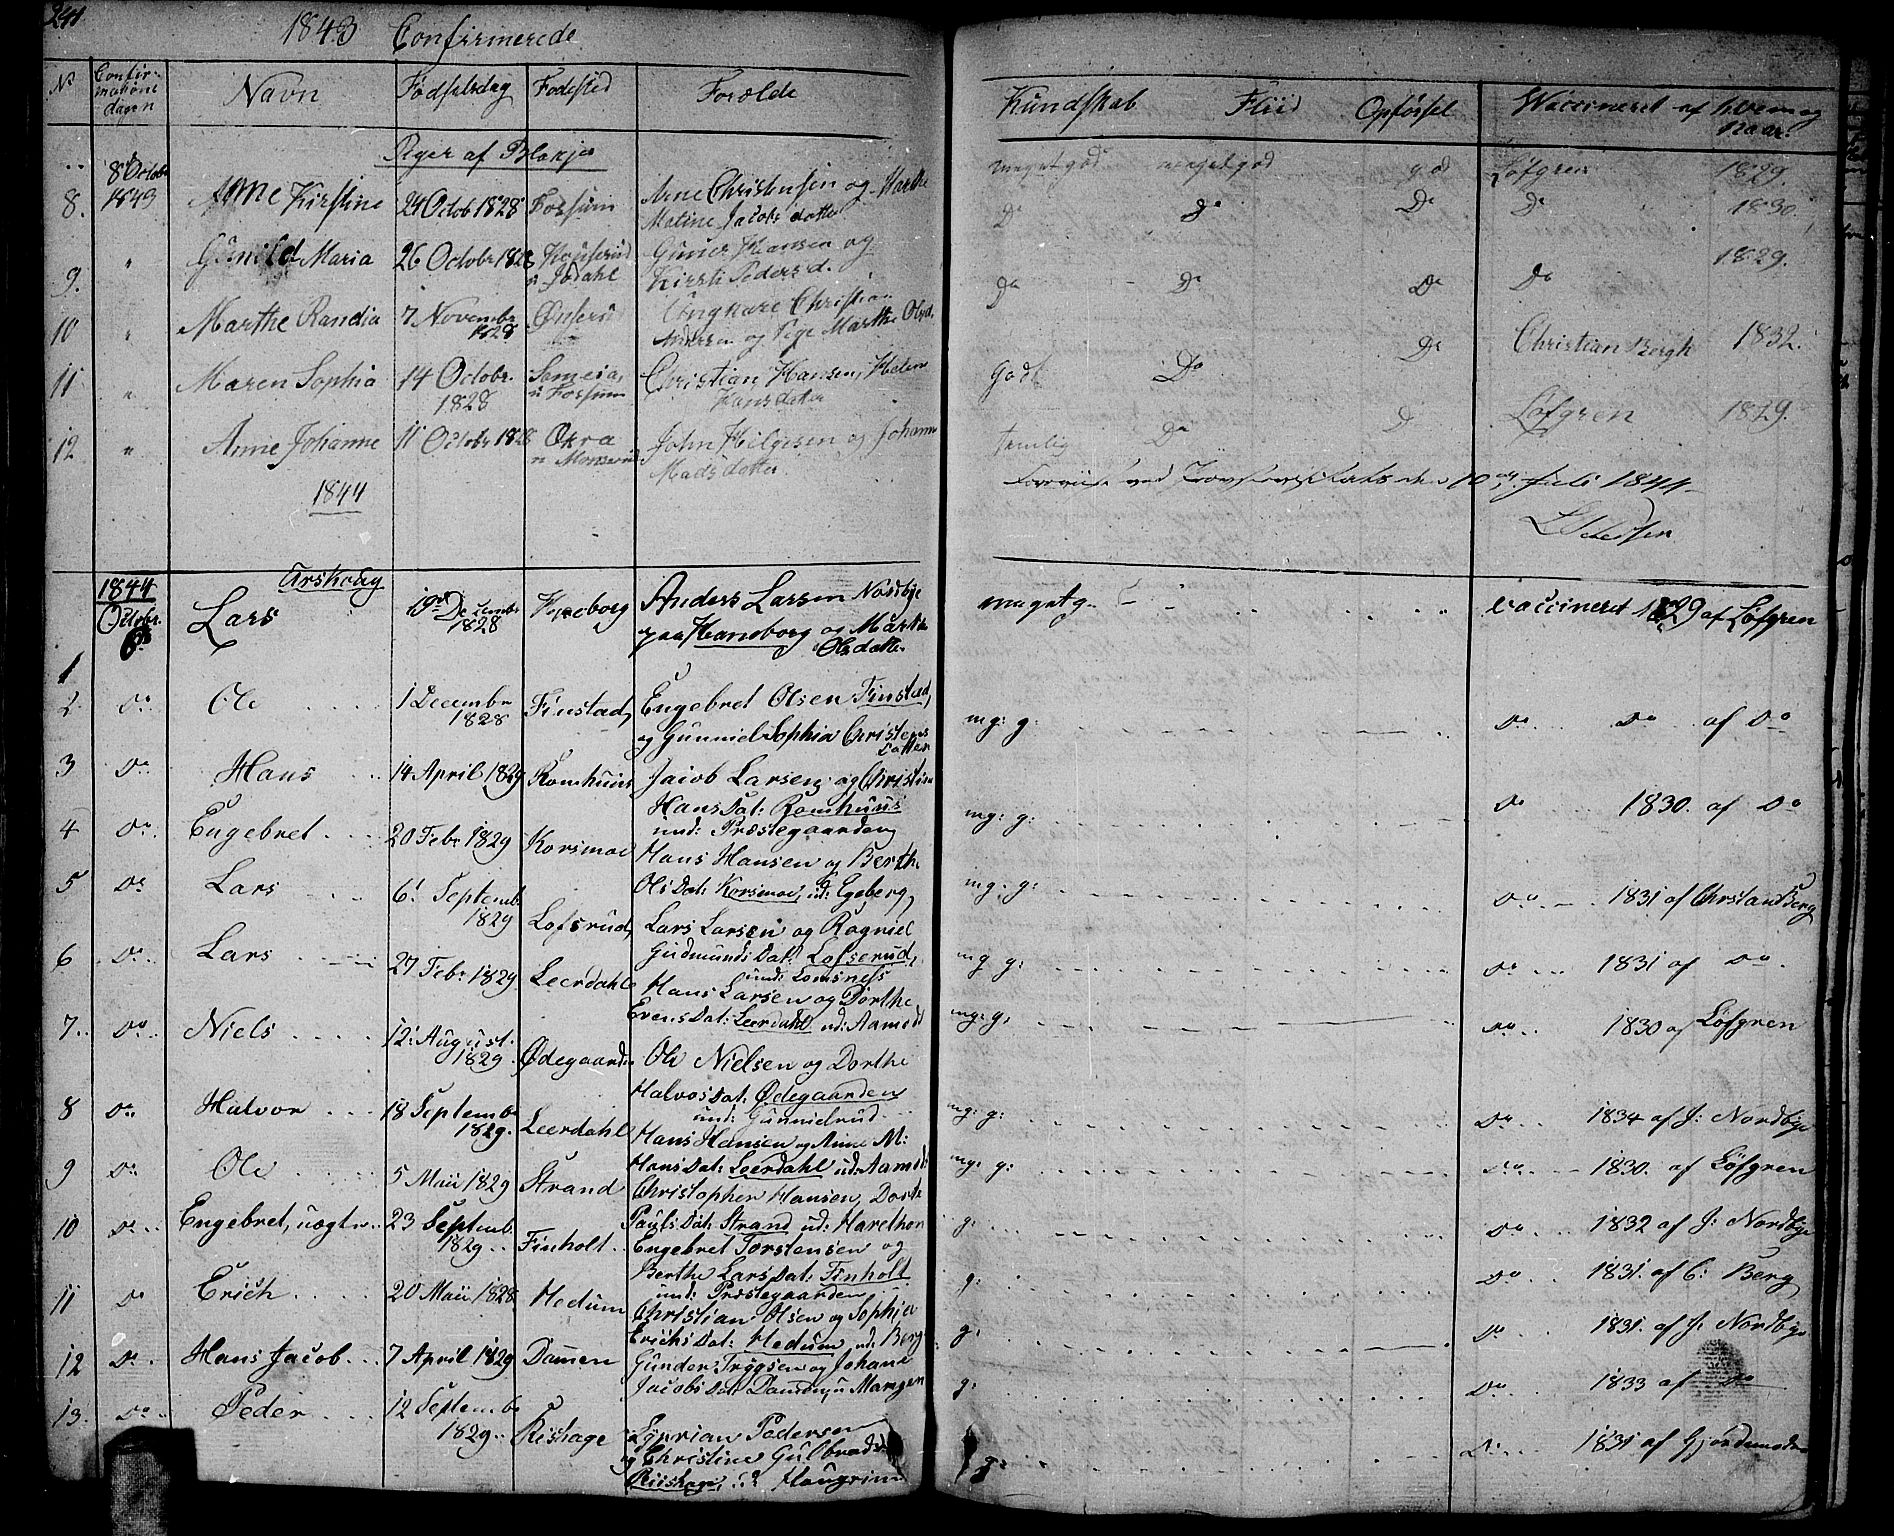 241
1843 Confirmerede
No Confirmations dagen Navn Fødselsdag Fødested Forælde Kundskab Fliid Opførsel Waccineret af hvem og naar.
Piger af Blakjer
8 Octobr 1843
8. Anne Kirstine 24 Octob 1828 Fossum Arne Christensen og Marthe Matine Jacobsdotter meget god meget god god Løfgren 1829.
9. " Gunild Maria 26 Octobr 1828 Gunner Hansen og Kirsti Pedersd. Do Do Do Do 1830.
10 " Marthe Randia 7 Novembr 1828 Ønserud Ungkarl Christian Andersen og Pige Marthe Olsd. Do Do Do Do 1829.
11 " Maren Sophia 14 Octobr. 1828 u Fossum Christian Hansen, Helene Hansdatter Godt Do Do Christian Bergh 1832.
12 " Anne Johanne 11 Octobr 1828 John Helgesen og Johanne Madsdotter. temlig Do D Løfgren 1829.
1844
Foreviist ved Provstevisitats den 10 Juli 1844
1844 Octobr. 6
Urskoug
1 Lars 19 Decembr 1828 Haneborg Anders Larsen Nordbye paa Haneborg og Marthe Olsdatter. meget g. vaccineret 1829 af Løfgren
2. Do Ole 1 Decembr 1828 Finstad, Engebret Olsen Finstad, og Gunniel Sophia Christens Datter mg: g: Do Do af Do
3 Do Hans 14 April 1829 Romhuus Jacob Larsen og Christine Hans Dat: Romhuus und: Præstegaarden mg: g: Do 1830. af Do
4 Do Engebret 20 Febr 1829 Korsmoe Hans Hansen og Berthe Ols Dat: Korsmoe, ud: Egeberg, mg: g: Do 1831 af Chrstan Berg
5 Do Lars 6 Septemb 1829 Lofsrud, Lars Larsen og Ragniel Gudmunds Dat: Lofserud, und: Lomsness mg g: Do 1831 af Do.
6 Do Lars 27 Febr 1829 Leerdahl Hans Larsen og Dorthe Evens Dat: Leerdahl ud: Aamodt mg: g: Do 1830 af Løfgren
7. Do Niels 12 August. 1829. Ødegaarden Ole Nielsen og Dorthe Halvos Dat: Ødegaarden und: Gunnielrud mg: g: Do 1834 af J: Nordbye
8 Do Halvor 18 Septembr 1829. Leerdahl Hans Hansen og Anne M: Hans Dat: Leerdahl ud: Aamod: mg: g: Do 1830. af Løfgren
9 Do Ole 5 Maii 1829 Strand Christopher Hansen, Dorte Pauls Dat: Strand ud: Harethon g: Do 1832 af J: Nordbye
10 Do Engebret, uægte 23 Septemb 1829 Finholt Engebret Torstensen og Berthe Lars Dat: Finholt und: Præstegaarden g: Do 1831. af C: Berg
11 Do Erich 20 Maii 1828 Hedum Christian Olsen og Sophia Erichs Dat: Hedum ud: Berg g: Do 1831. af J: Nordbye
12 Do Hans Jacob 7 April 1829 Damen Gunder Tryggsen og Johane Jacobs Dat: g: Do 1833 af Do
13. Do Peder 12 Septemb 1829 Rishage Cyprian Pedersen og Christine Gulbrands Riishage, g: Do 1831 af Gjordemoder